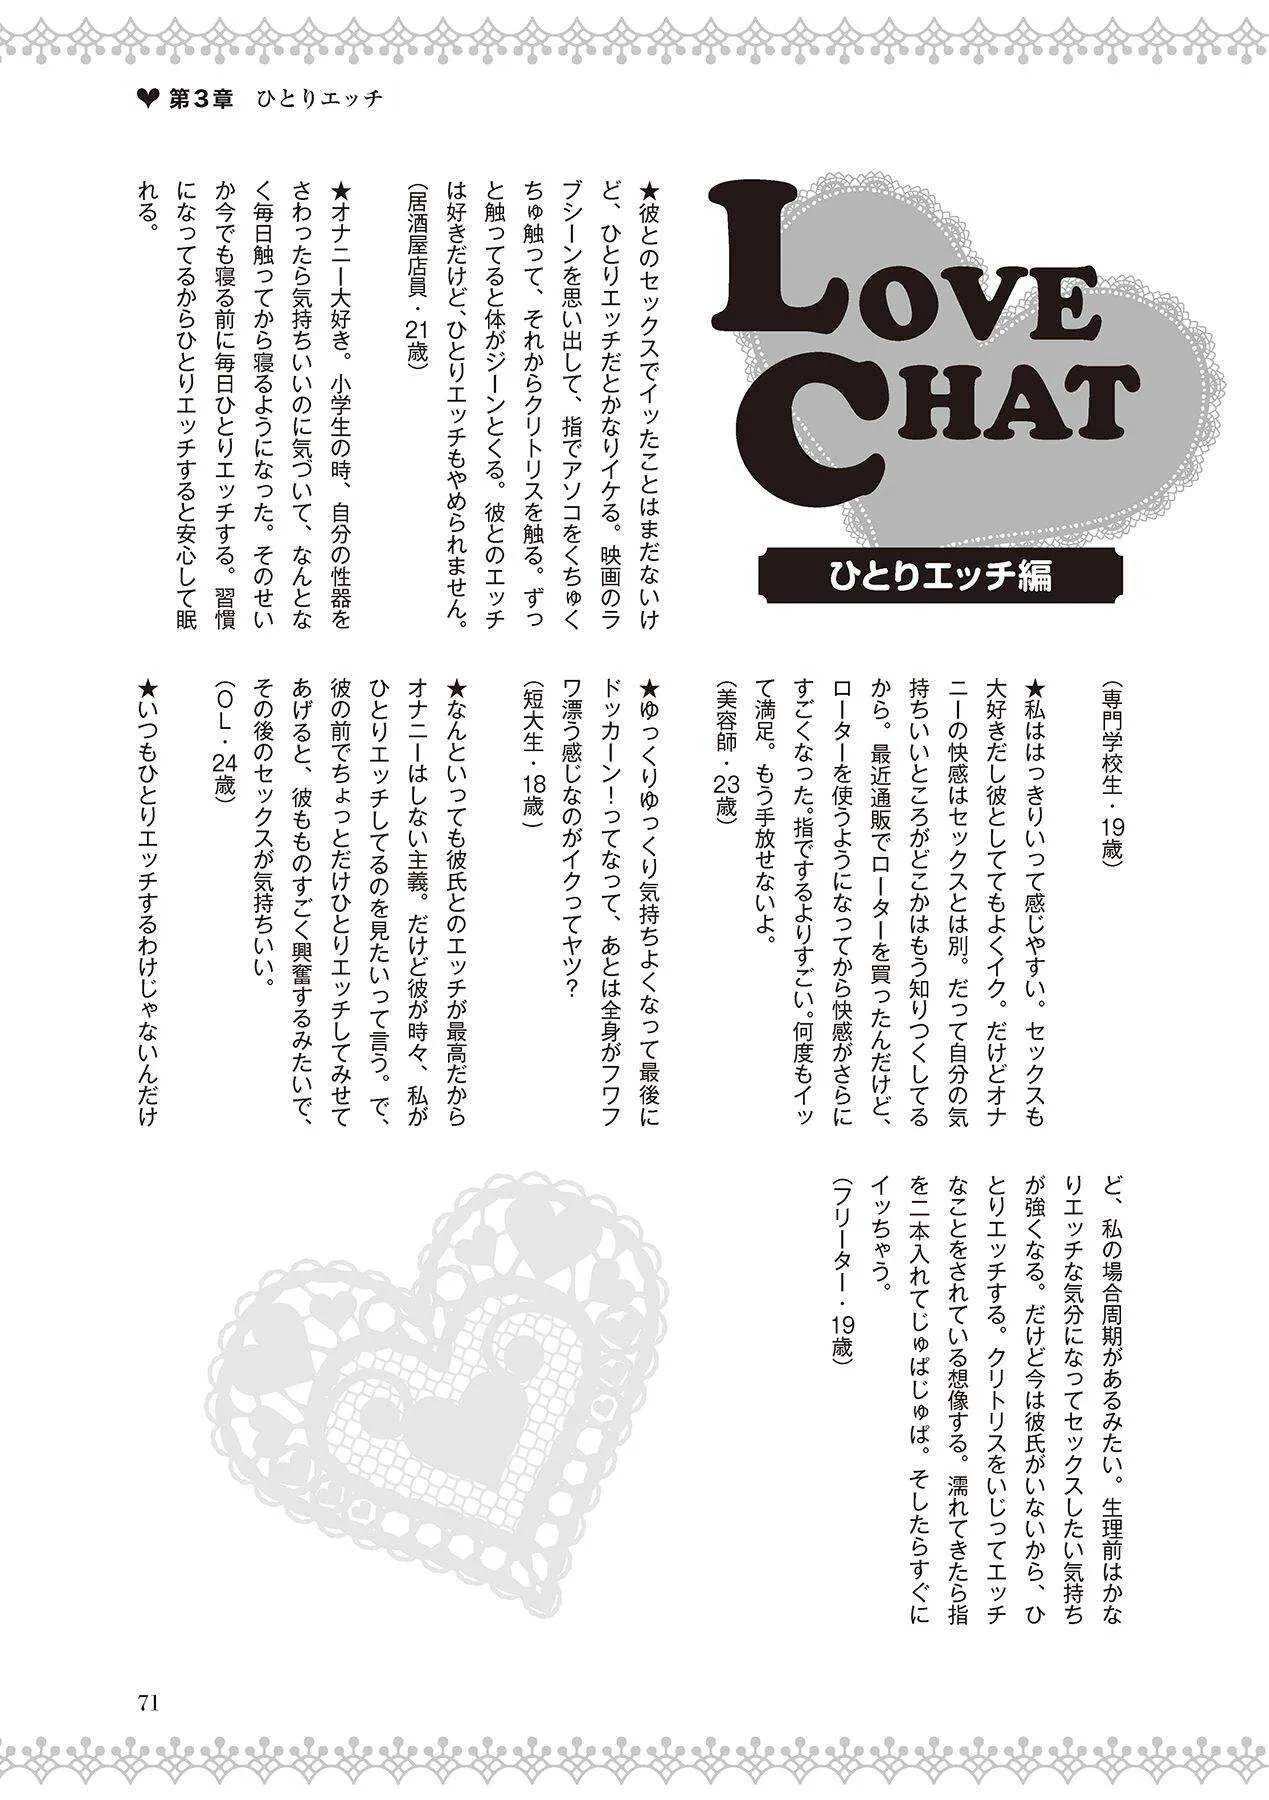 第3章 ひとりエッチ
LOVE
CHAT
ひとりエッチ編
★彼とのセックスでイッたことはまだないけ
ど、ひとりエッチだとかなりイケる。映画のラ
ブシーンを思い出して、指でアソコをくちゅく
ちゅ触って、それからクリトリスを触る。ずっ
と触ってると体がジーンとくる。彼とのエッチ
は好きだけど、ひとりエッチもやめられません。
(居酒屋店員・21歳)
(専門学校生・19歳)
★私ははっきりいって感じやすい。セックスも
大好きだし彼としててもよくイク。だけどオナ
ニーの快感はセックスとは別。だって自分の気
持ちいいところがどこかはもう知りつくしてる
から。最近通販でローターを買ったんだけど、
ローターを使うようになってから快感がさらに
すごくなった。指でするよりすごい。何度もイッ
て満足。もう手放せないよ。
(美容師・23歳)
★ゆっくりゆっくり気持ちよくなって最後に
ドッカーン!ってなって、あとは全身がフワフ
ワ漂う感じなのがイクってヤツ?
(短大生・18歳)
★なんといっても彼氏とのエッチが最高だから
オナニーはしない主義。だけど彼が時々、私が
ひとりエッチしてるのを見たいって言う。で、
彼の前でちょっとだけひとりエッチしてみせて
あげると、彼もものすごく興奮するみたいで、
その後のセックスが気持ちいい。
(OL・24歳)
★いつもひとりエッチするわけじゃないんだけ
ど、私の場合周期があるみたい。生理前はかな
りエッチな気分になってセックスしたい気持ち
が強くなる。だけど今は彼氏がいないから、ひ
とりエッチする。クリトリスをいじってエッチ
なことをされている想像する。濡れてきたら指
を二本入れてじゅぱじゅぱ。そしたらすぐに
イッちゃう。
(フリーター・19歳)
71